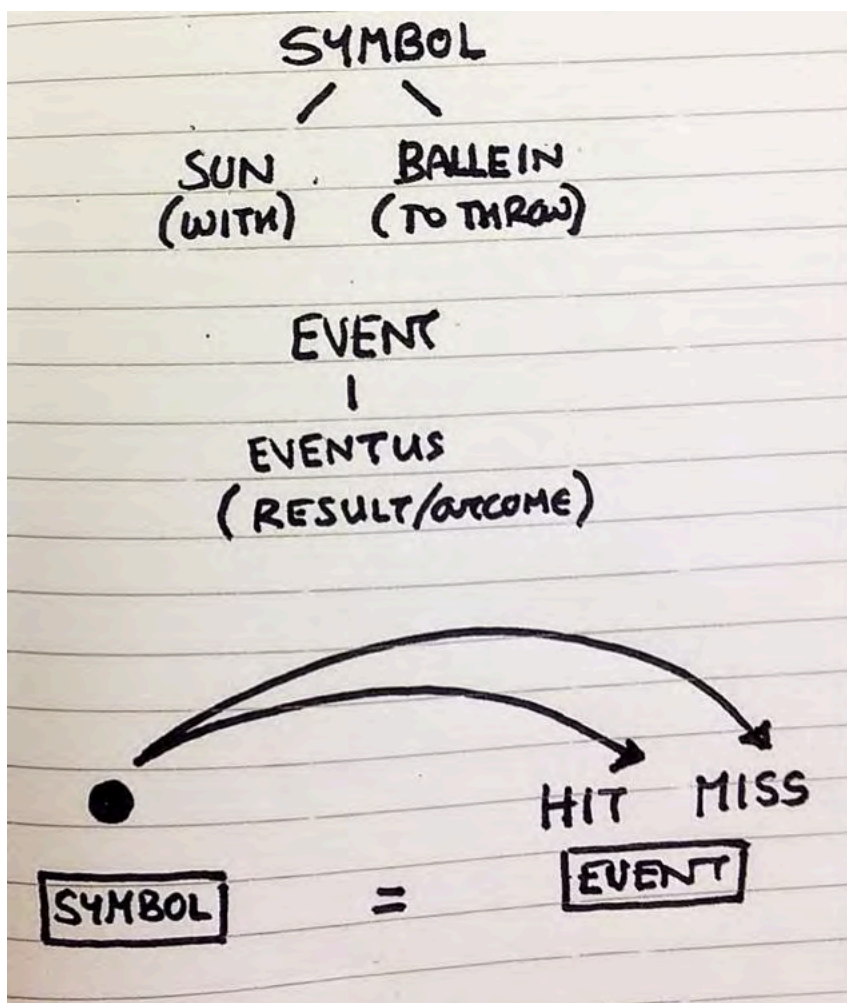 SYMBOL
SUN BALLEIN
(WITH) (TO THROW)
EVENT
EVENTUS
(RESULT/OUTCOME)
HIT MISS
SYMBOL = EVENT